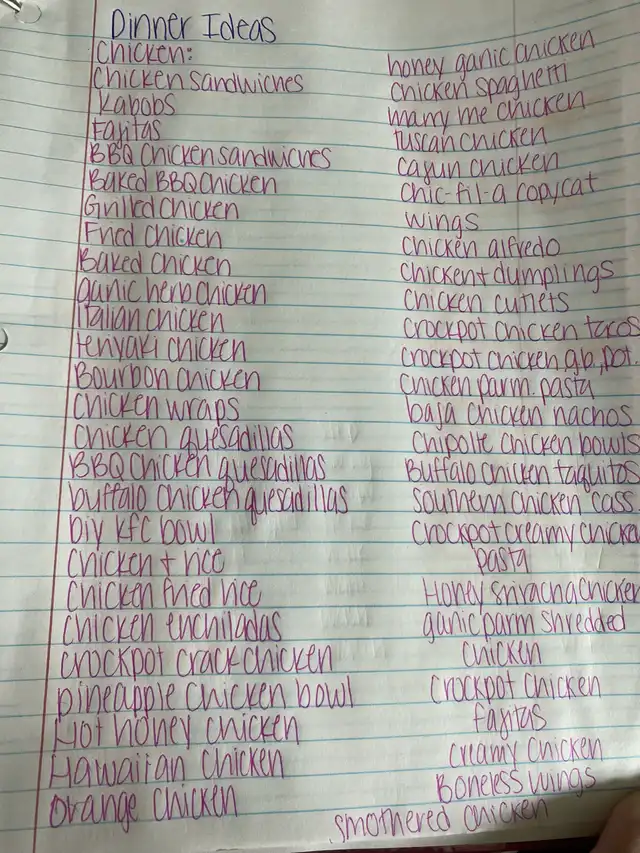 Dinner Ideas
Chicken:
Chicken sandwiches
Kabobs
Fajitas
BBQ Chicken sandwiches
Baked BBQ Chicken
Grilled Chicken
Fried Chicken
Baked Chicken
garlic herb chicken
Italian chicken
teriyaki chicken
Bourbon chicken
Chicken wraps
Chicken quesadillas
BBQ Chicken quesadillas
buffalo chicken quesadillas
Diy KFC bowl
Chicken + rice
Chicken fried rice
Chicken enchiladas
Crockpot crack chicken
pineapple chicken bowl
Hot honey chicken
Hawaiian chicken
orange chicken
honey garlic chicken
chicken spaghetti
marry me chicken
tuscan chicken
cajun chicken
chic-fil-a copycat
wings
chicken alfredo
chicken + dumplings
chicken cutlets
crockpot chicken tacos
crockpot chicken gb, pot.
chicken parm. pasta
baja chicken nachos
Chipotle chicken bowls
Buffalo chicken taquitos
Southern chicken cass.
Crockpot creamy chicken
pasta
Honey sriracha chicken
garlic parm shredded
chicken
Crockpot chicken
fajitas
creamy chicken
Boneless wings
smothered chicken